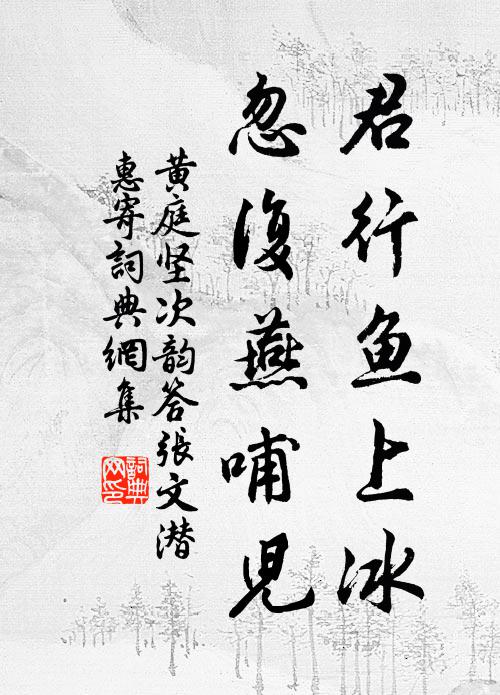 君行鱼上冰
忽復燕哺児
黄庭坚次韵答張文潜
惠寄詞典網集
詞典网印